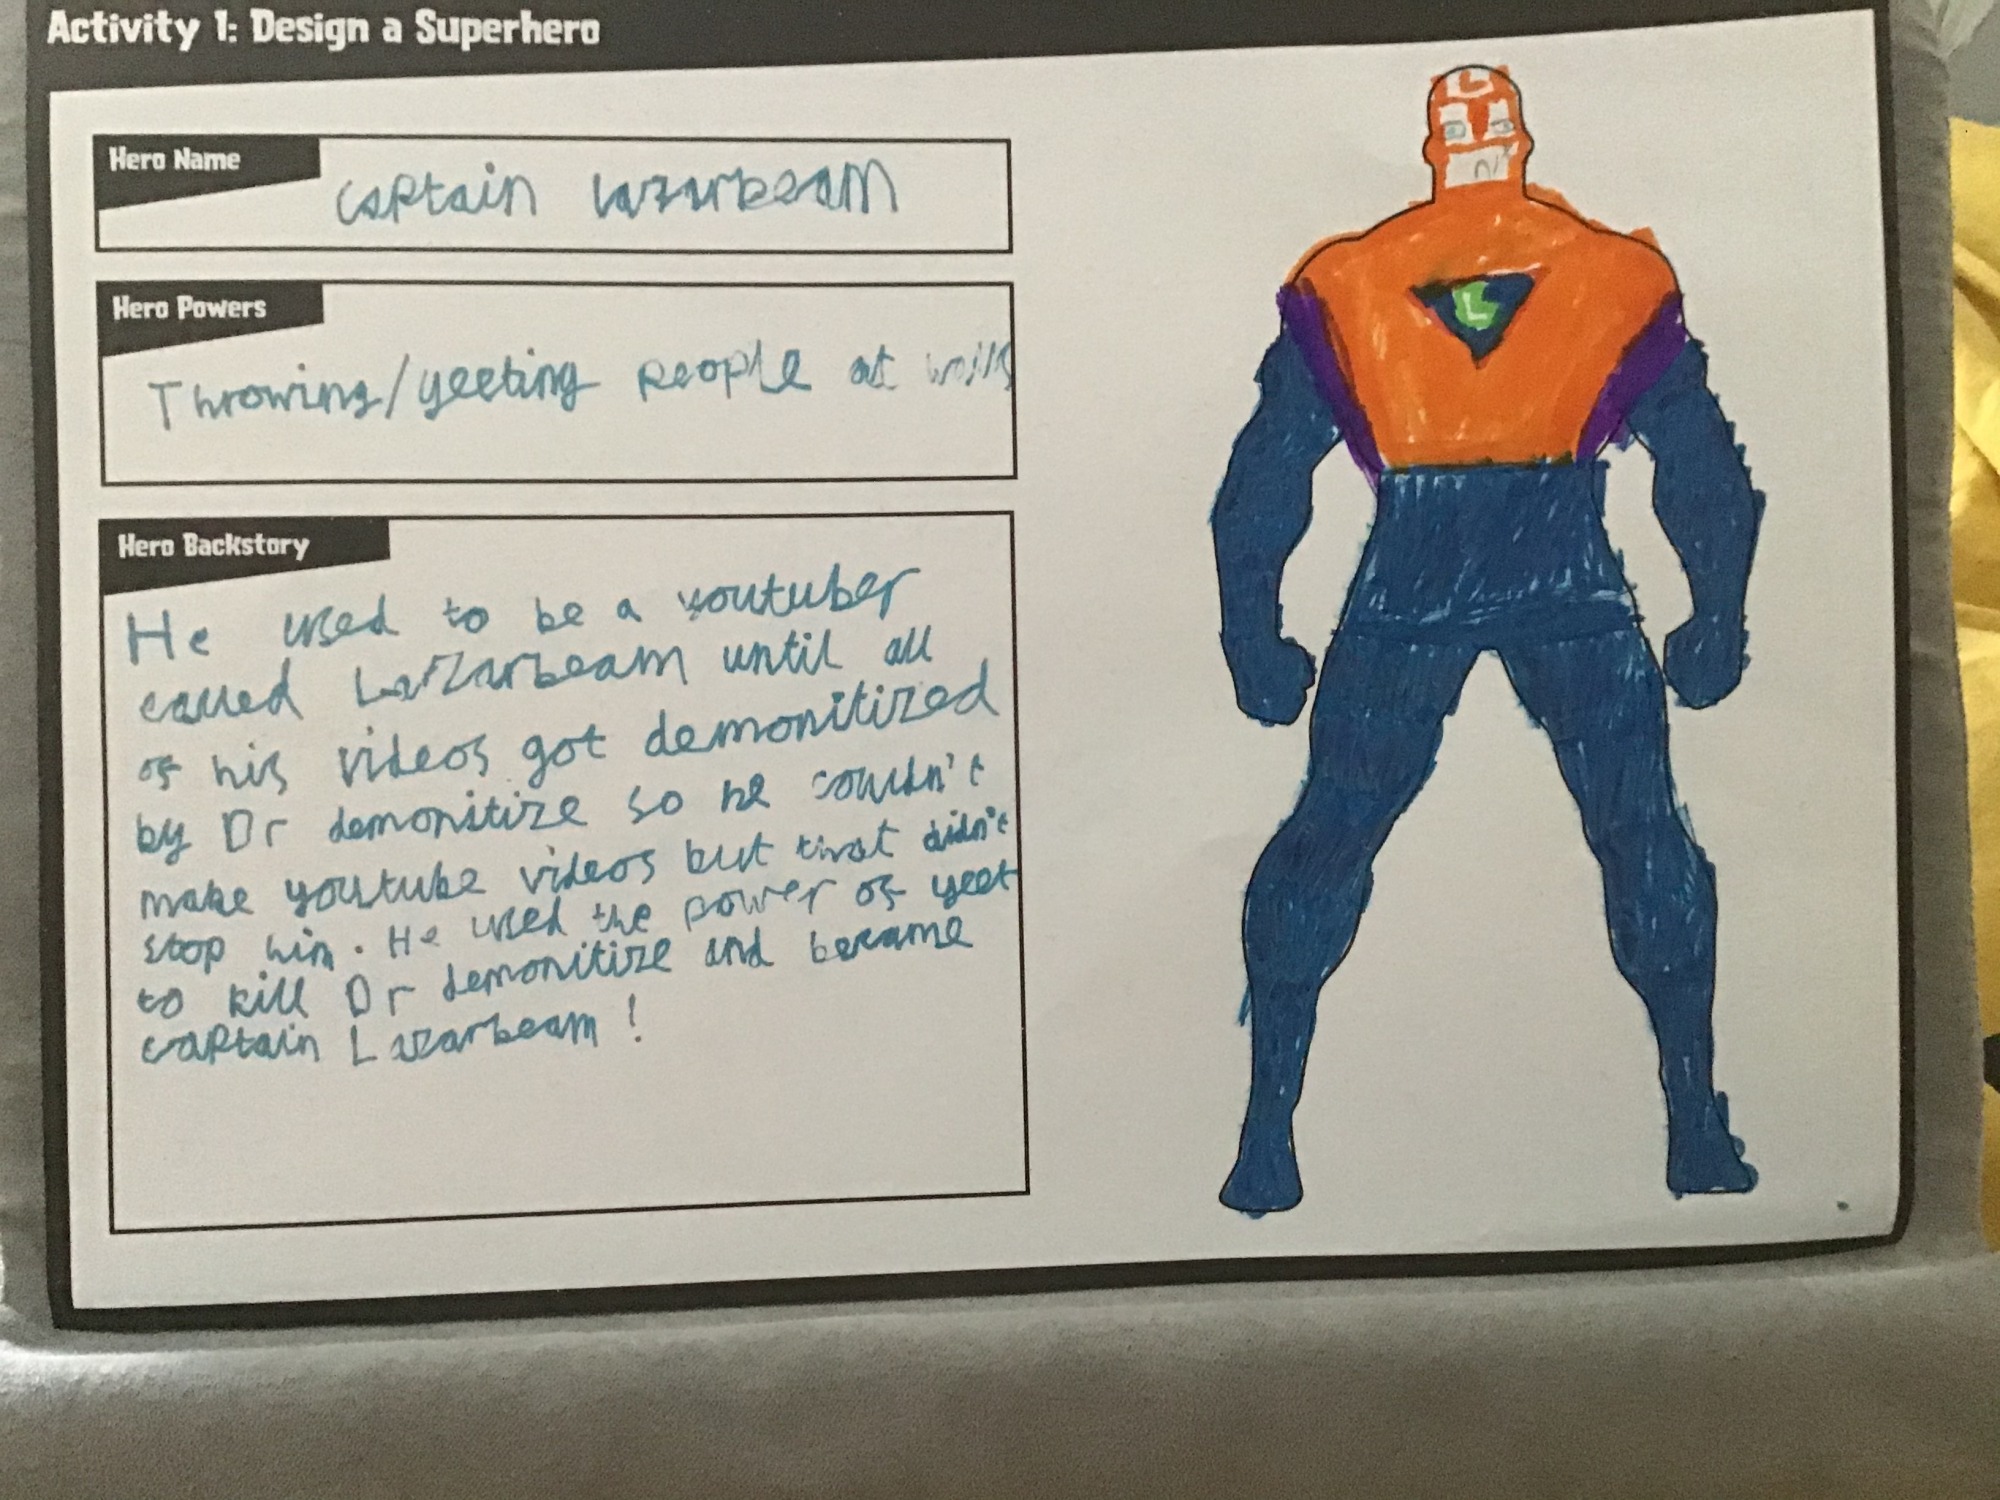 Activity 1: Design a Superhero
Hero Name
captain lazarbeam
Hero Powers
Throwing/yeeting people at walls
Hero Backstory
He used to be a youtuber
called Lazarbeam until all
of his videos got demonitized
by Dr demonitize so he couldn't
make youtube videos but that didn't
stop him. He used the power of yeet
to kill Dr demonitize and became
captain Lazarbeam!
L
L